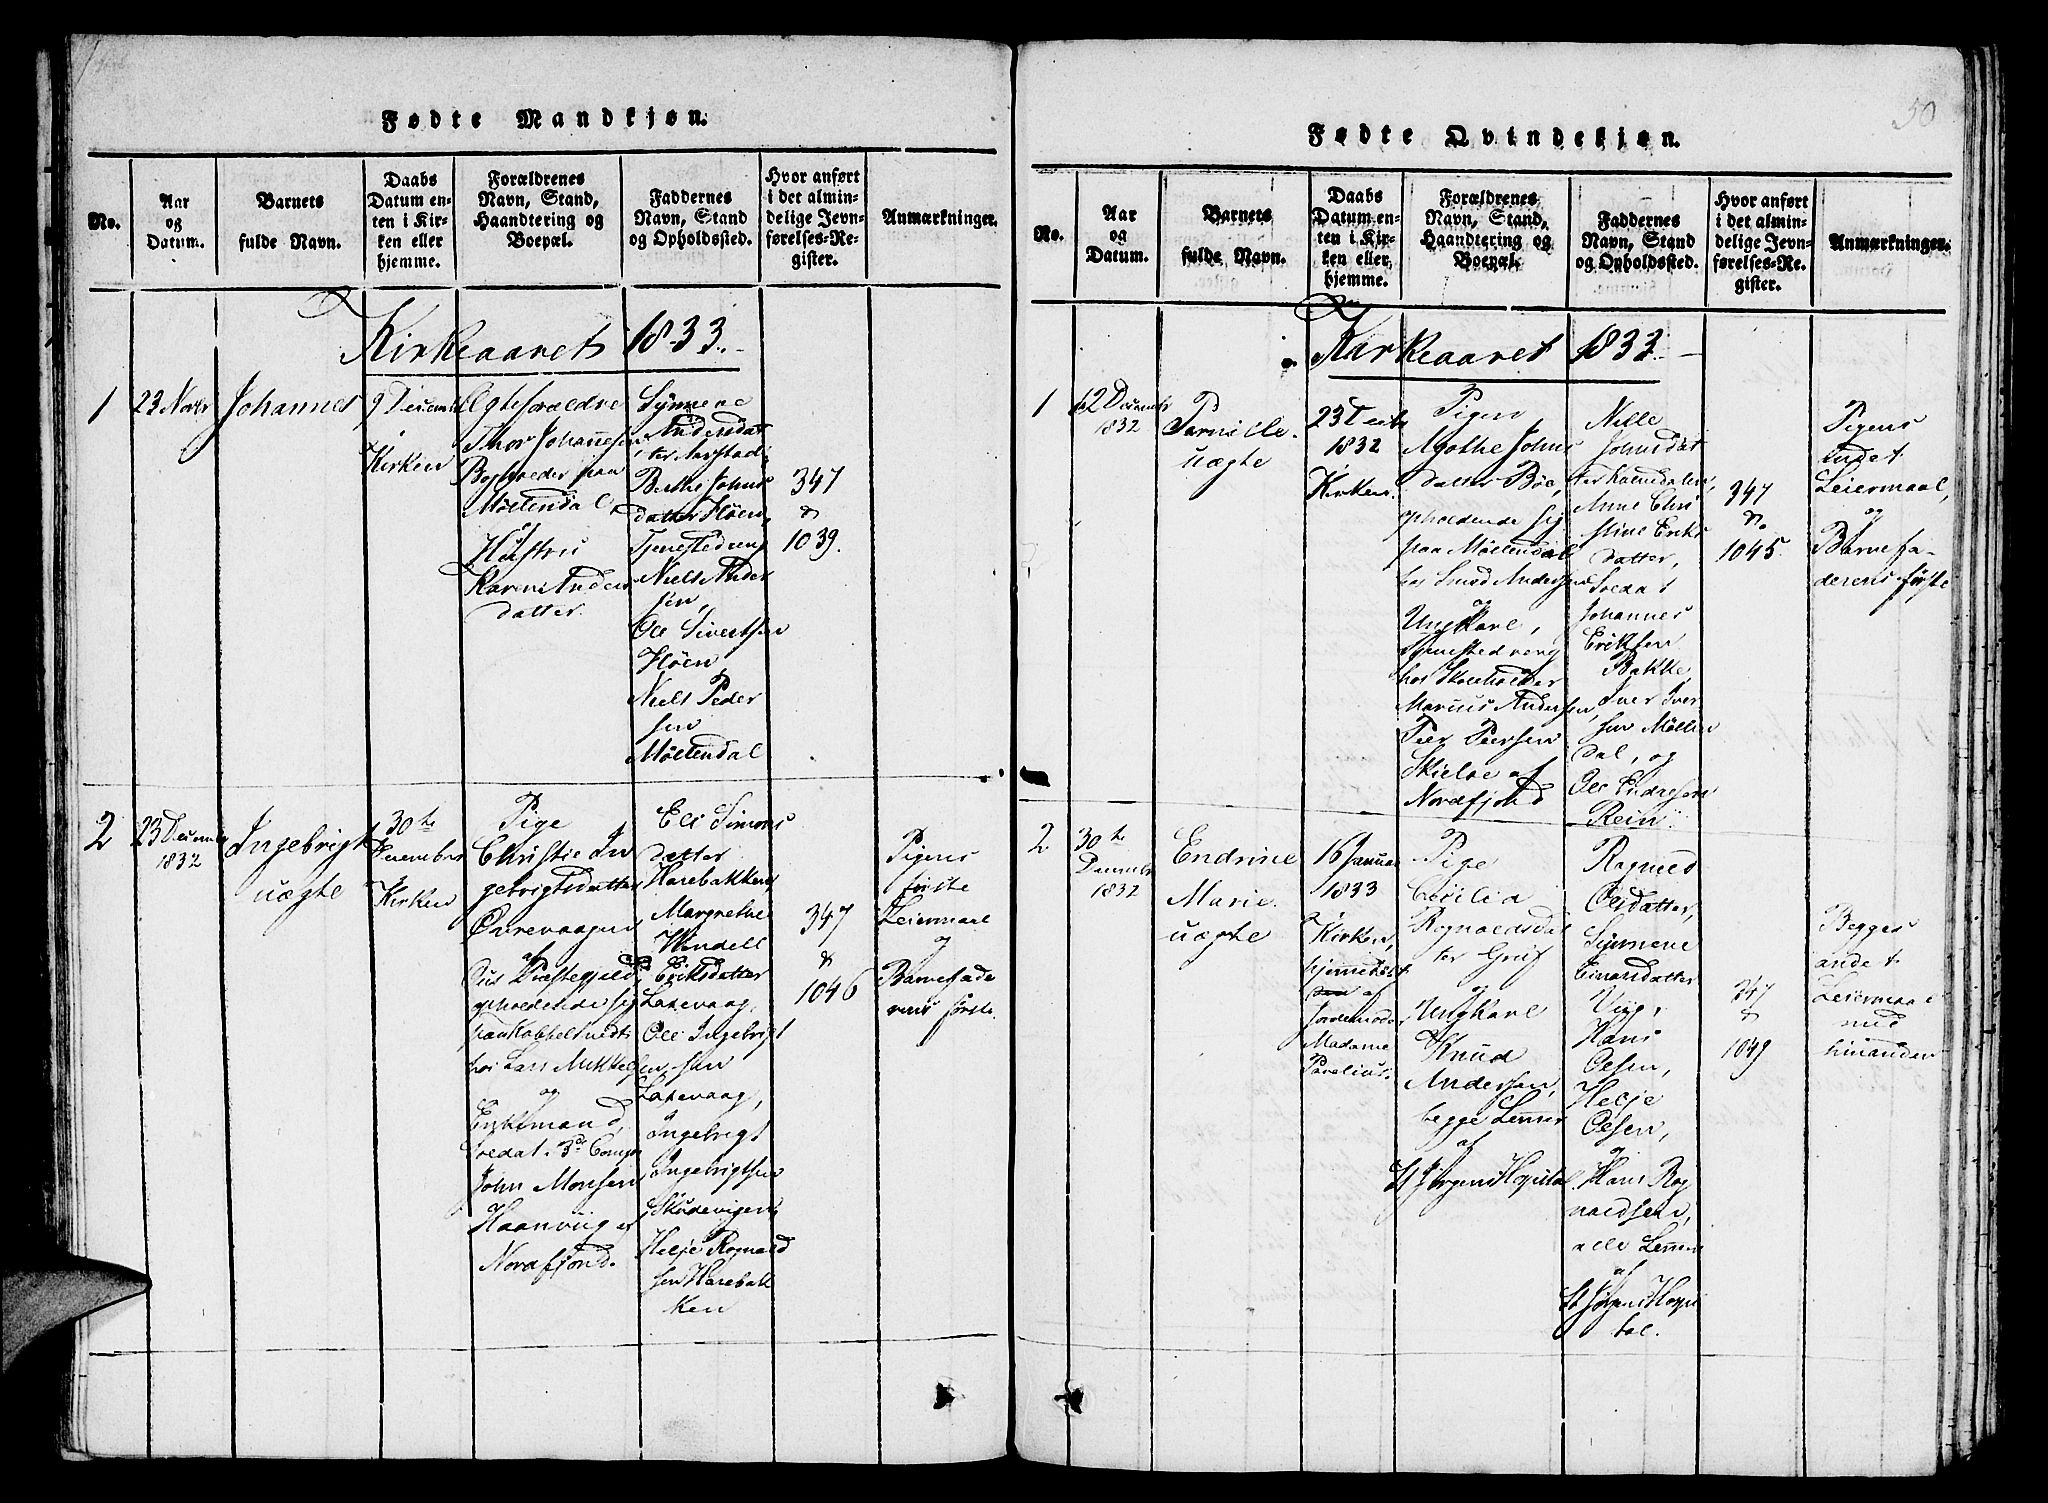 Fødte Mandkjøn.
No.
Aar
og
Datum.
Barnets
fulde Navn.
Daabs
Datum en-
ten i Kir-
ken eller
hjemme.
Forældrenes
Navn, Stand,
Haandtering og
Boepæl.
Faddernes
Navn, Stand
og Opholdssted.
Hvor anført
i det almin-
delige Jevn-
førelses-Re-
gister.
Anmærkninger.
Kirkeaaret 1833.
1
23 Novbr
Johannes
9 Decemb
Kirken
Ægteforældre
Thor Johannesen
paa
Møllendal
og
Hustru
Karen Anders
datter.
Synneve
Andersdat
ter Aarstad,
Berthe Johns
datter Fløen,
Tjenestedreng
Niels Ander
sen,
Ole Sivertsen
Fløen
Niels Peder
sen
Møllendal
347
&
1039.
2
23 Decembr
1832
Ingebrigt
uægte
30te
December
Kirken
Pige
Christie In
gebrigtsdatter
af
Præstegjeld,
opholdende sig
hos Lars Mikkelsen
og
Enkemand,
Soldat i 3de Comp
John Monsen
Haanviig
Nordfjord.
Eli Simons
datter
Harebakken
Margrethe
Windell
Eriksdatter
Laxevaag,
Ole Ingebrigt
sen
Laxevaag,
Ingebrigt
Ingebrigtsen
Skudevigen,
Helje Rognald
sen Harebak
ken
347
&
1046
Pigens
første
Leiermaal
og
Barnefade
rens første.
50
Fødte Qvindekjøn.
No.
Aar
og
Datum.
Barnets
fulde Navn.
Daabs
Datum en-
ten i Kir-
ken eller
hjemme.
Forældrenes
Navn, Stand,
Haandtering og
Boepæl.
Faddernes
Navn, Stand
og Opholdssted.
Hvor anført
i det almin-
delige Jevn-
førelses-Re-
gister.
Anmærkninger.
Kirkeaaret 1833.
1
12 Decembr
1832
Pernille.
uægte
23 Decbr
1832
Kirken.
Pigen
Agathe Johns
datter Bøe,
opholdende sig
paa Møllendal
hos Smed Andersen
og
Ungkarl,
Tjenestedreng
hos Skoleholder
Marcus Andersen,
Peer Peersen
af
Nordfjord
Nille
Johnsdat
ter Kalvedalen,
Anne Chri
stine Eriks
datter,
Soldat
Johannes
Eriksen
Bakke,
Iver Iver
sen Møllen
dal, og
Ole Endresen
Rein.
347
&
1045.
Pigens
andet
Leiermaal,
og
Barnefa-
derens første
2
30te
Decembr
1832
Endrine
Marie.
uægte
16 Januar
1833
Kirken,
hjemmedøbt
af
Jordemoder
Madame
Parelius.
Pige
Cecilia
Rognaldsdat
ter Grif
og
Ungkarl
Knud
Andersen,
begge Lemmer
af
St Jørgens Hospital.
Rognild
Olsdatter,
Synneve
Einarsdatter
Viig,
Hans
Olsen,
Helje
Olsen,
og
Hans Rog
naldsen,
alle Lemmer
af
St Jørgens Hospi
tal.
347
&
1049
Begges
andet
Leiermaal
med
hinanden